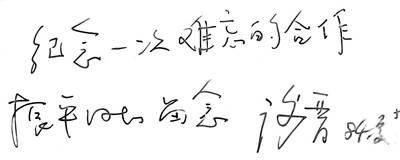 纪念一次难忘的合作
振平同志留念 谈音 84.夏